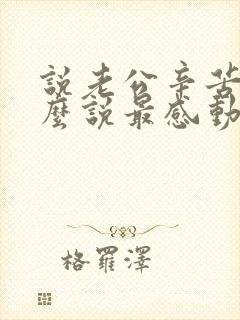 說老公辛苦
麼說最感動
格羅澤